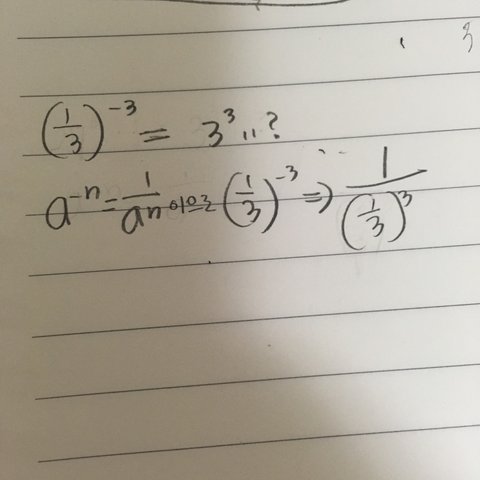 (1/3)^-3 = 3^3..?
a^-n = 1/a^n 이므로 (1/3)^-3 ⇒ 1/(1/3)^3